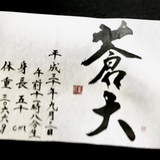 蒼大
平成三十年九月十二日
午前十時八分生
身長 五十 cm
体重 三